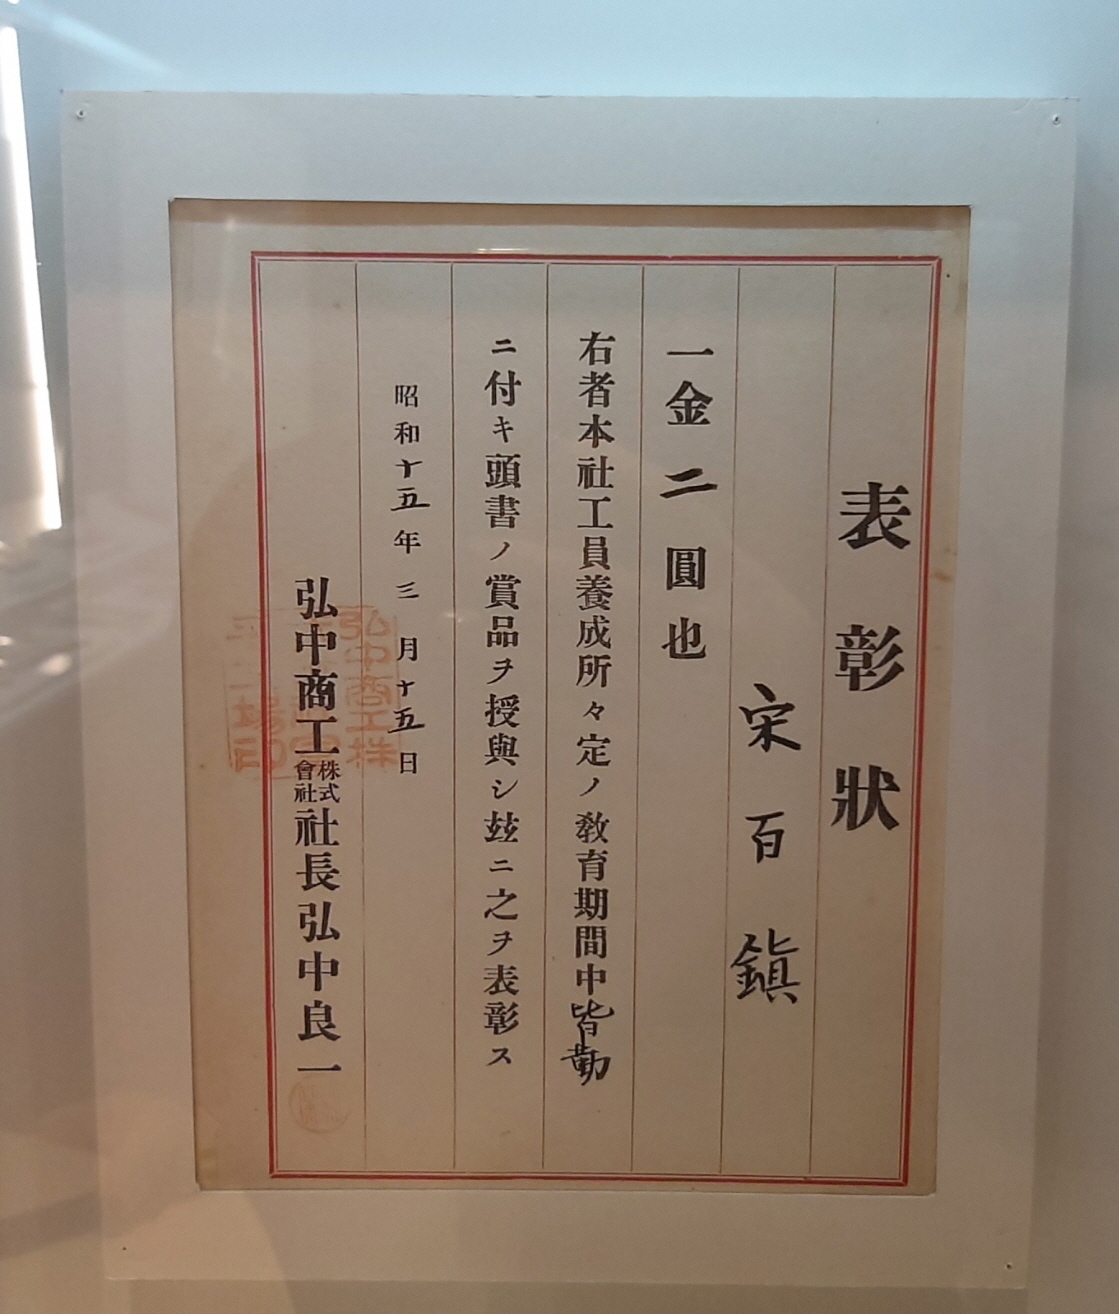 表彰狀
宋百鎭
一金二圓也
右者本社工員養成所々定ノ敎育期間中皆勤
ニ付キ頭書ノ賞品ヲ授與シ玆ニ之ヲ表彰ス
昭和十五年三月十五日
弘中商工株式會社社長弘中良一
弘中商工株